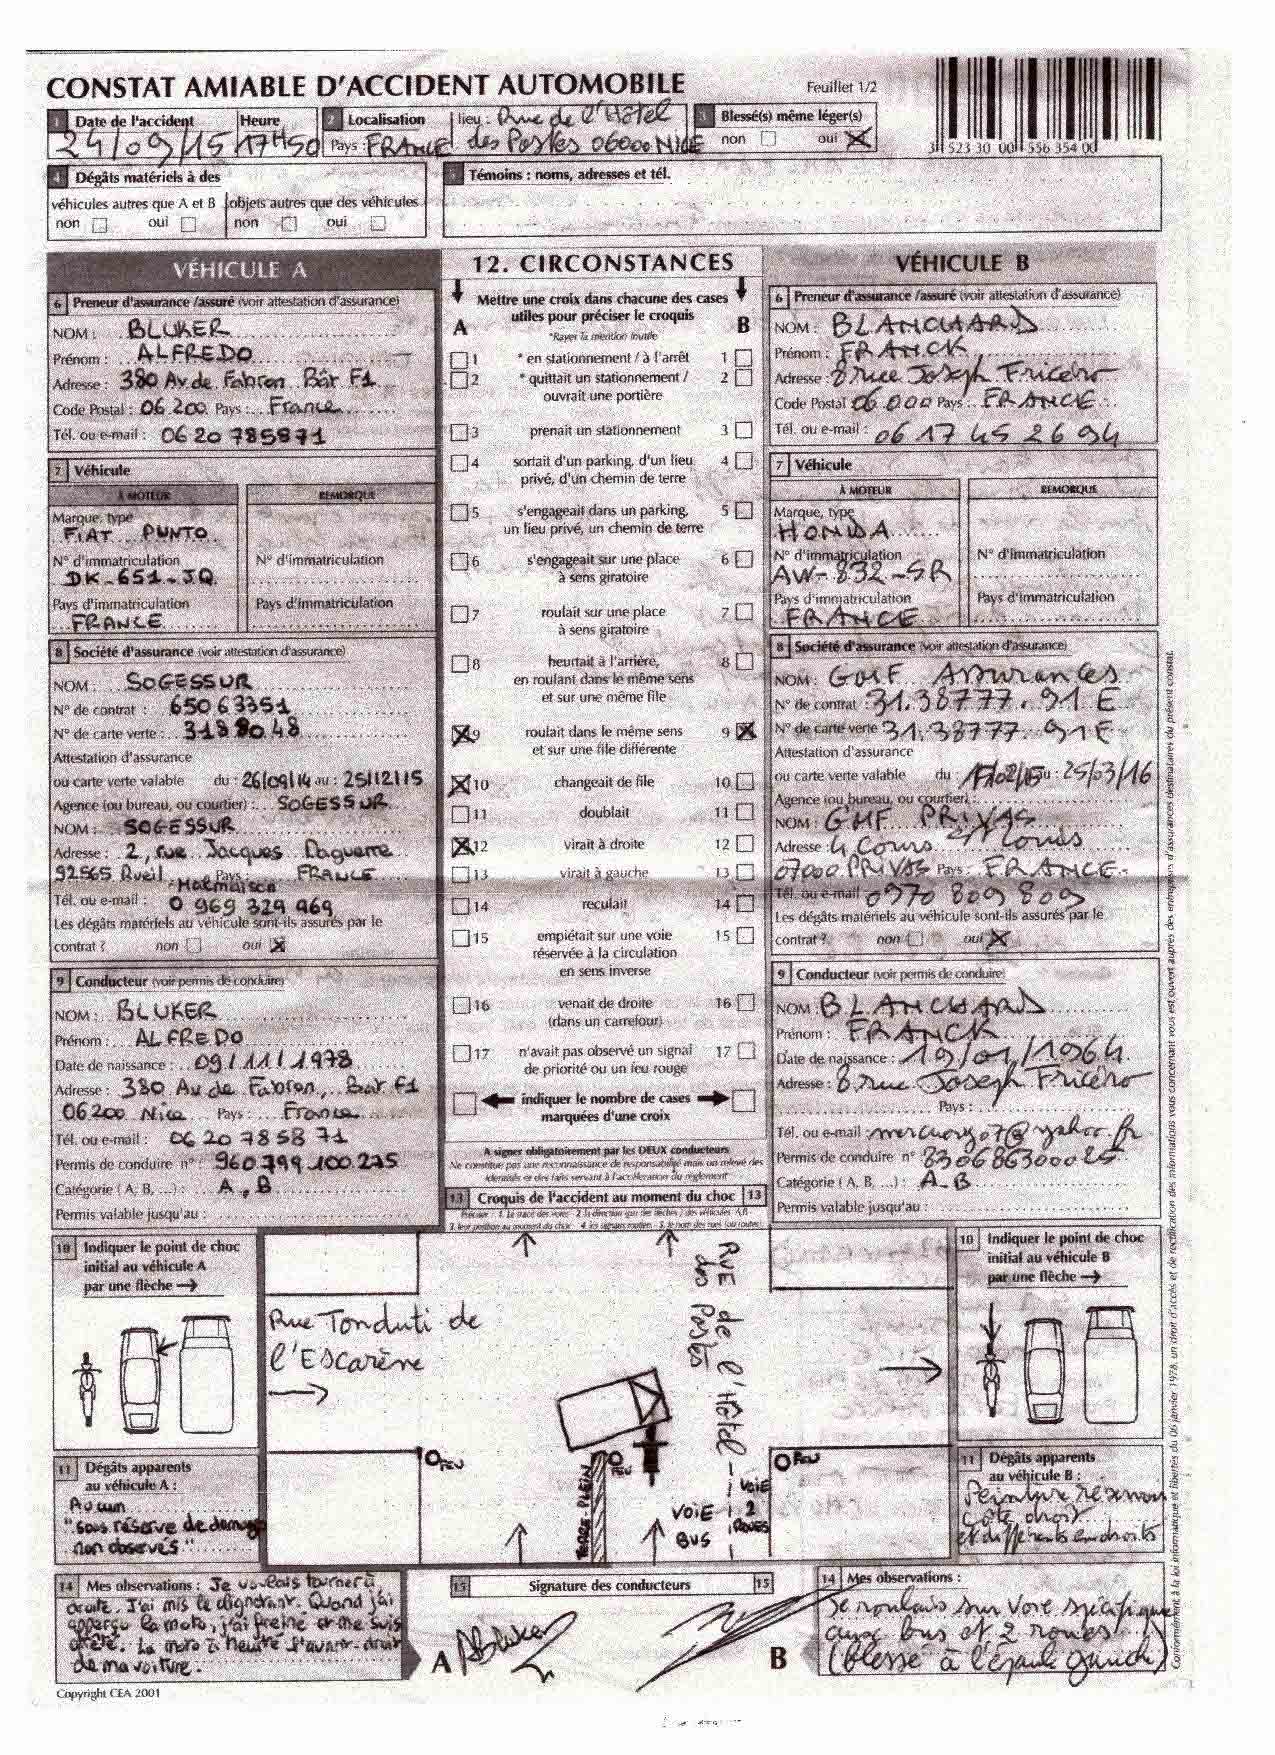 CONSTAT AMIABLE D'ACCIDENT AUTOMOBILE
Feuillet 1/2
1 Date de l'accident Heure
24/09/15 17H50
2 Localisation lieu : Rue de l'Hôtel
Pays : FRANCE des Postes 06000 NICE
3 Blessé(s) même léger(s)
non oui X
3 523 30 00 556 354 00
4 Dégâts matériels à des
véhicules autres que A et B objets autres que des véhicules
non oui non oui
5 Témoins : noms, adresses et tél.
VÉHICULE A
6 Preneur d'assurance /assuré (voir attestation d'assurance)
NOM : BLUKER
Prénom : ALFREDO
Adresse : 380 Av de Fabron Bât F1
Code Postal : 06 200 Pays : France
Tél. ou e-mail : 06 20 785871
7 Véhicule
À MOTEUR REMORQUE
Marque, type
FIAT PUNTO
N° d'immatriculation N° d'immatriculation
DK-651-JQ
Pays d'immatriculation Pays d'immatriculation
FRANCE
8 Société d'assurance (voir attestation d'assurance)
NOM : SOGESSUR
N° de contrat : 65063351
N° de carte verte : 3188048
Attestation d'assurance
ou carte verte valable du : 26/09/14 au : 25/12/15
Agence (ou bureau, ou courtier) : SOGESSUR
NOM : SOGESSUR
Adresse : 2, rue Jacques Daguerre
92565 Rueil Malmaison Pays : FRANCE
Tél. ou e-mail : 0 969 329 969
Les dégâts matériels au véhicule sont-ils assurés par le
contrat ? non oui X
9 Conducteur (voir permis de conduire)
NOM : BLUKER
Prénom : ALFREDO
Date de naissance : 09/11/1978
Adresse : 380 Av de Fabron, Bât F1
06200 Nice Pays : France
Tél. ou e-mail : 06 20 78 58 71
Permis de conduire n° : 960 799 100 275
Catégorie (A, B, ...) : A, B
Permis valable jusqu'au :
12. CIRCONSTANCES
Mettre une croix dans chacune des cases
A utiles pour préciser le croquis B
*Rayer la mention inutile
1 * en stationnement / à l'arrêt 1
2 * quittait un stationnement / 2
ouvrait une portière
3 prenait un stationnement 3
4 sortait d'un parking, d'un lieu 4
privé, d'un chemin de terre
5 s'engageait dans un parking, 5
un lieu privé, un chemin de terre
6 s'engageait sur une place 6
à sens giratoire
7 roulait sur une place 7
à sens giratoire
8 heurtait à l'arrière, 8
en roulant dans le même sens
et sur une même file
X 9 roulait dans le même sens 9 X
et sur une file différente
X 10 changeait de file 10
11 doublait 11
X 12 virait à droite 12
13 virait à gauche 13
14 reculait 14
15 empiétait sur une voie 15
réservée à la circulation
en sens inverse
16 venait de droite 16
(dans un carrefour)
17 n'avait pas observé un signal 17
de priorité ou un feu rouge
indiquer le nombre de cases
marquées d'une croix
A signer obligatoirement par les DEUX conducteurs
Ne constitue pas une reconnaissance de responsabilité mais un relevé des
identités et des faits servant à l'accélération du règlement
VÉHICULE B
6 Preneur d'assurance /assuré (voir attestation d'assurance)
NOM : BLANCHARD
Prénom : FRANCK
Adresse : 8 rue Joseph Fricéro
Code Postal 06 000 Pays : FRANCE
Tél. ou e-mail : 06 17 45 26 94
7 Véhicule
À MOTEUR REMORQUE
Marque, type
HONDA
N° d'immatriculation N° d'immatriculation
AW-832-SR
Pays d'immatriculation Pays d'immatriculation
FRANCE
8 Société d'assurance (voir attestation d'assurance)
NOM : GMF Assurances
N° de contrat : 31.38777.91 E
N° de carte verte 31.38777.91E
Attestation d'assurance
ou carte verte valable du : au : 25/03/16
Agence (ou bureau, ou courtier) :
NOM : GMF PRIVAS
Adresse : 4 Cours St Louis
07000 PRIVAS Pays : FRANCE
Tél. ou e-mail 0970 809 809
Les dégâts matériels au véhicule sont-ils assurés par le
contrat ? non oui X
9 Conducteur (voir permis de conduire)
NOM : BLANCHARD
Prénom : FRANCK
Date de naissance : 19/01/1964
Adresse : 8 rue Joseph Fricéro
Pays :
Tél. ou e-mail : mercury07@yahoo.fr
Permis de conduire n° 830686300025
Catégorie (A, B, ...) : A-B
Permis valable jusqu'au :
13 Croquis de l'accident au moment du choc 13
Préciser : 1. le tracé des voies 2. la direction (par des flèches) des véhicules A, B
3. leur position au moment du choc 4. les signaux routiers 5. le nom des rues (ou routes)
10 Indiquer le point de choc
initial au véhicule A
par une flèche →
Rue Tonduti de
l'Escarène
RUE de l'Hôtel
des Postes
FEU
FEU
FEU
TERRE-PLEIN
VOIE
BUS
VOIE
2
ROUES
10 Indiquer le point de choc
initial au véhicule B
par une flèche →
11 Dégâts apparents
au véhicule A :
Aucun
"sous réserve de domage
non observés"
11 Dégâts apparents
au véhicule B :
Peinture réservoir
Côté droit
et différents endroits
14 Mes observations : Je voulais tourner à
droite. J'ai mis le clignotant. Quand j'ai
apperçu la moto, j'ai freiné et me suis
arrêté. La moto a heurté l'avant-droit
de ma voiture.
15 Signature des conducteurs 15
A ABluker B
14 Mes observations :
Je roulais sur voie spécifique
aux bus et 2 roues.
(blessé à l'épaule gauche)
Copyright CEA 2001
Conformément à la loi informatique et libertés du 06 janvier 1978, un droit d'accès et de rectification des informations vous concernant vous est ouvert auprès des entreprises d'assurances destinataires du présent constat.